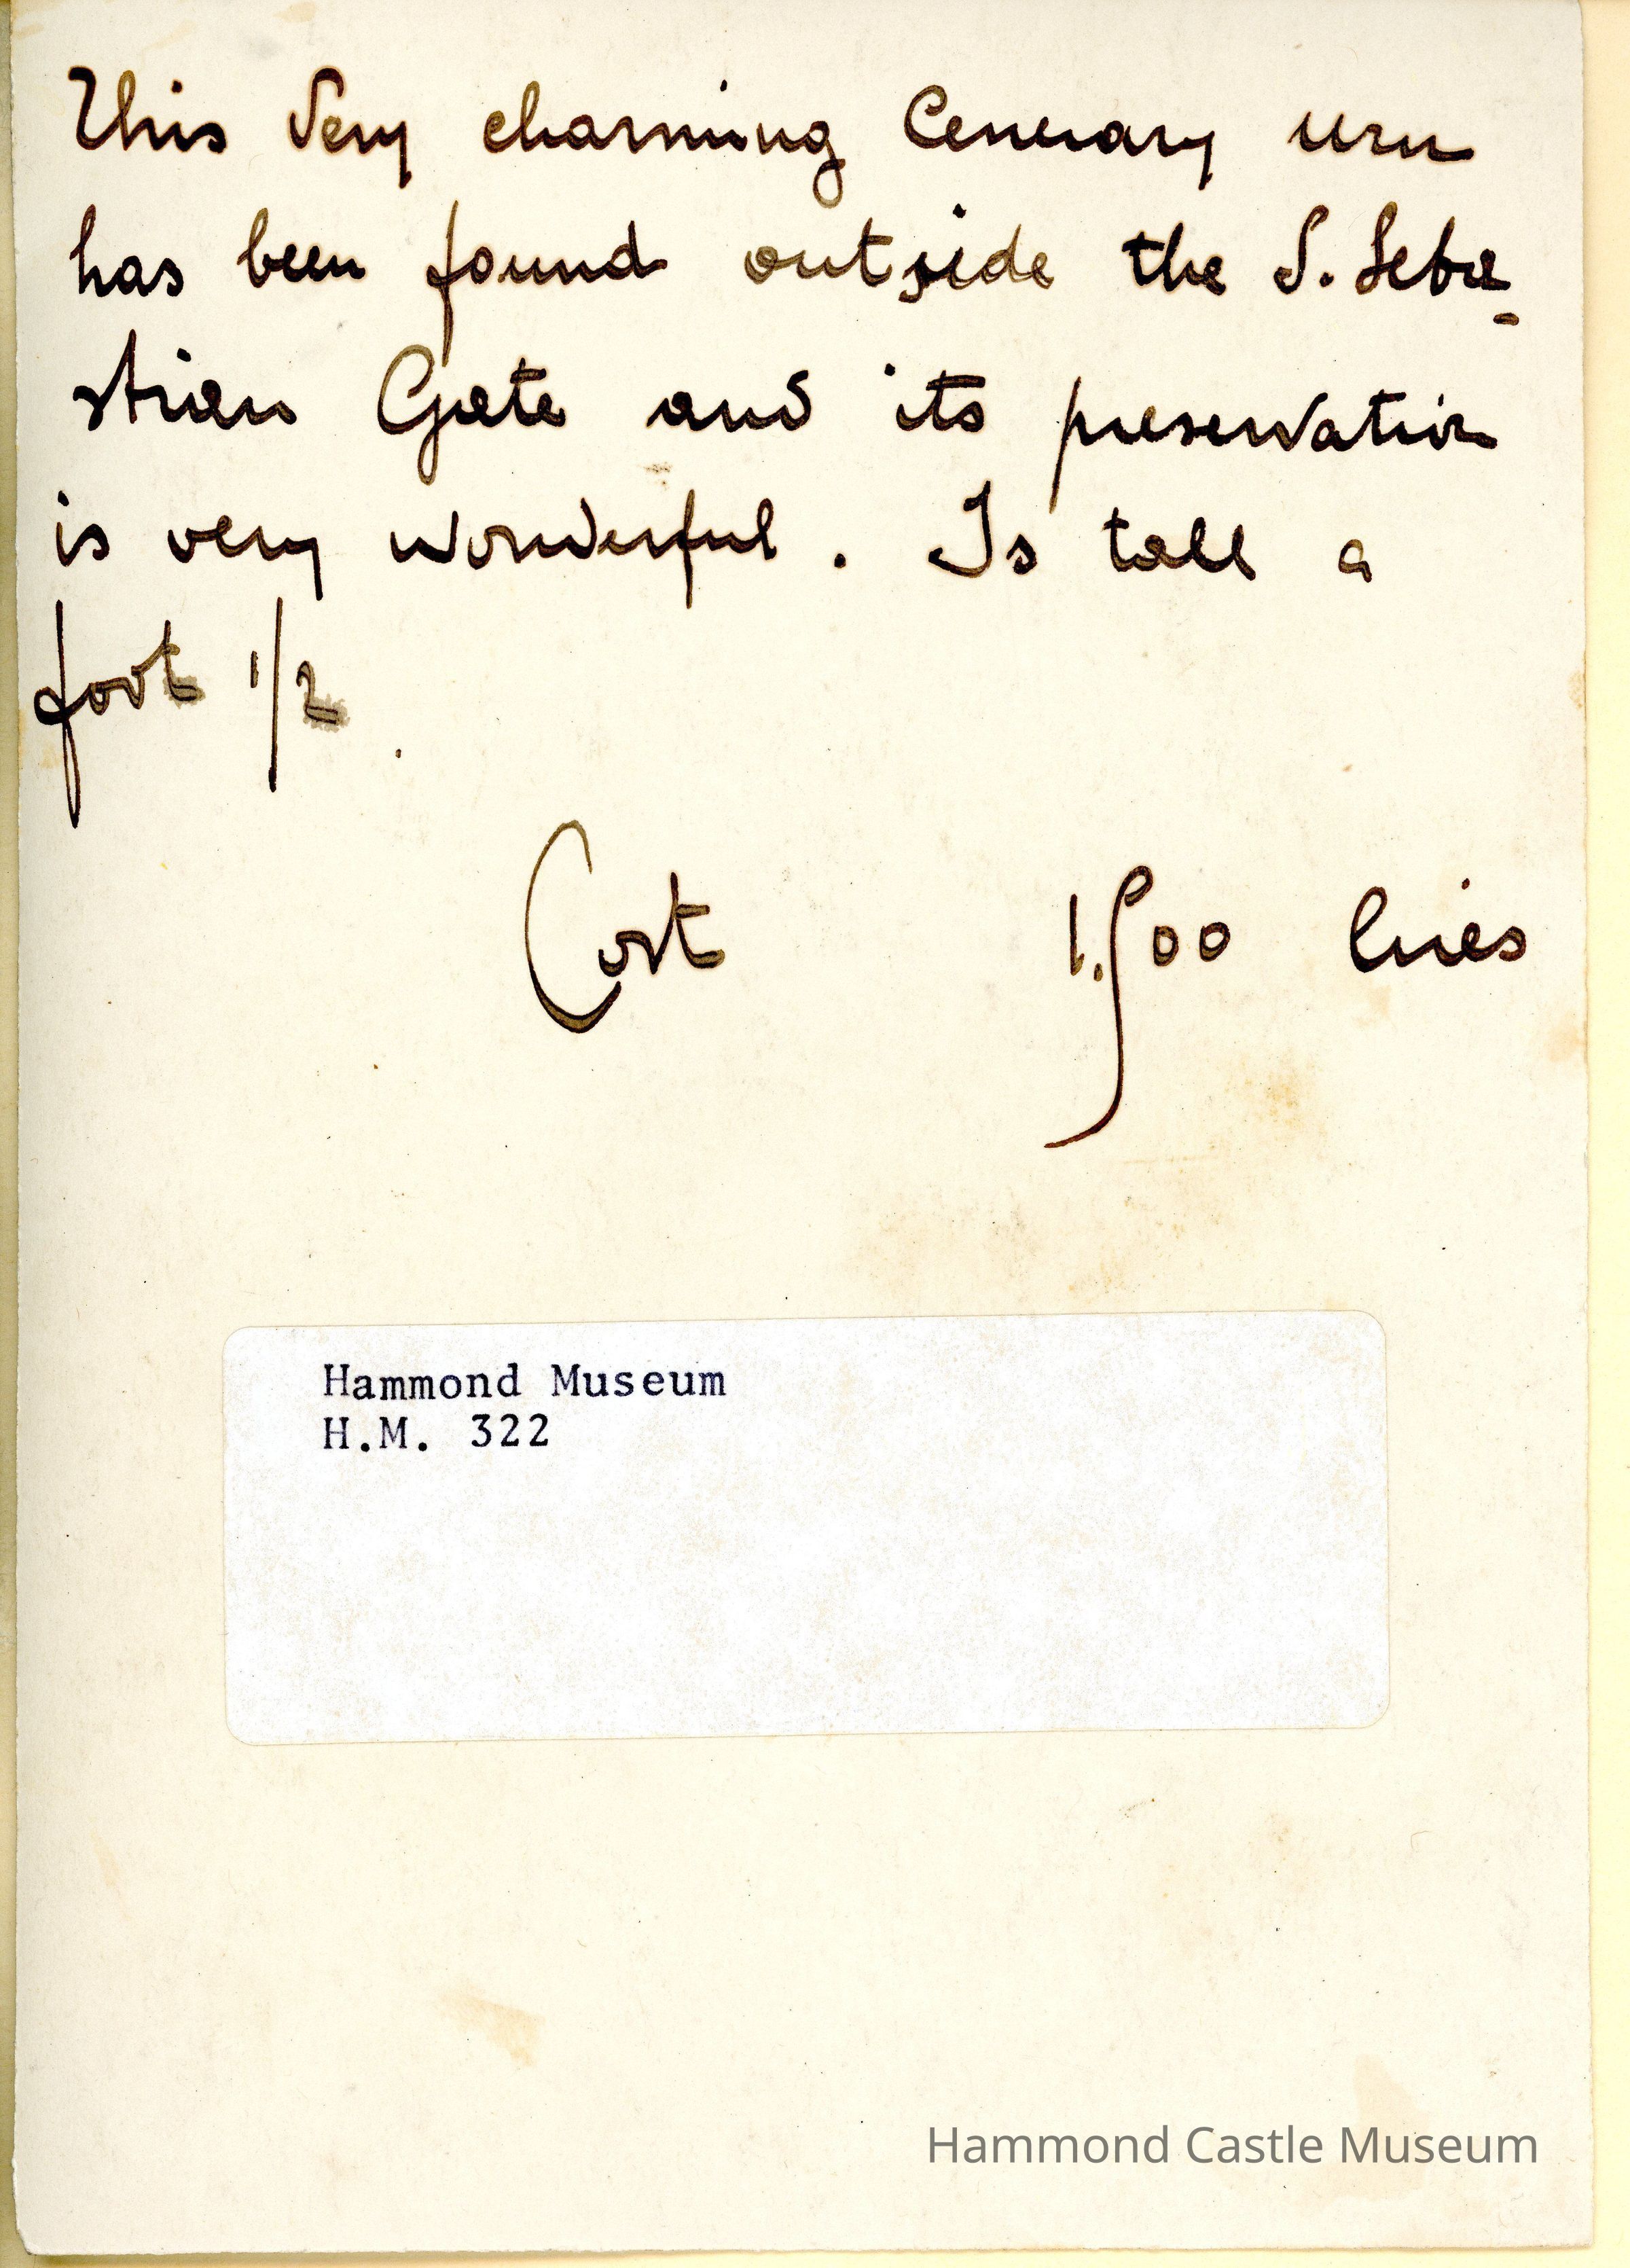 This Very charming Cenerary urn
has been found outside the S. Seba-
strian Gate and its preservation
is very wonderful. Is tall a
foot 1/2.
Cost 1.500 lires
Hammond Museum
H.M. 322
Hammond Castle Museum